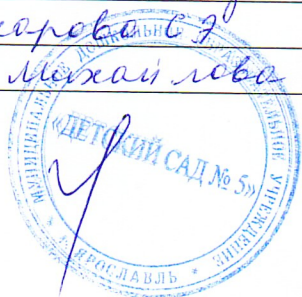 Михайлова
МУНИЦИПАЛЬНОЕ ДОШКОЛЬНОЕ ОБРАЗОВАТЕЛЬНОЕ УЧРЕЖДЕНИЕ
«ДЕТСКИЙ САД № 5»
г. ЯРОСЛАВЛЬ